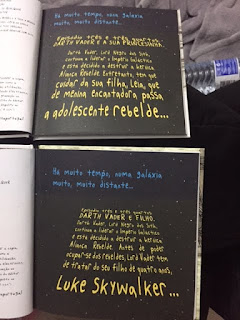 Há muito tempo, numa galáxia
muito, muito distante...
Episódio três e três quartos:
DARTH VADER E A SUA PRINCESINHA.
Darth Vader, Lord Negro dos Sith,
continua a liderar o Império Galáctico
e está decidido a destruir a heroica
Aliança Rebelde. Entretanto, tem que
cuidar da sua filha, Leia, que
de menina encantadora passa
a adolescente rebelde...
Há muito tempo, numa galáxia
muito, muito distante...
Episódio três e três quartos:
DARTH VADER E FILHO.
Darth Vader, Lord Negro dos Sith,
continua a liderar o Império Galáctico
e está decidido a destruir a heroica
Aliança Rebelde. Antes de poder
ocupar-se dos rebeldes, Lord Vader tem
de tratar do seu filho de quatro anos,
LUKE SKYWALKER...